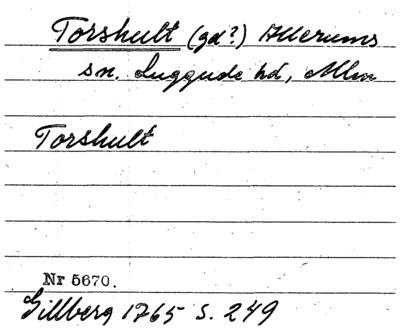 Torshult (gd?) Allerums
sn. Luggude hd, Mlm
Torshult
Nr 5670.
Gillberg 1765 s. 249